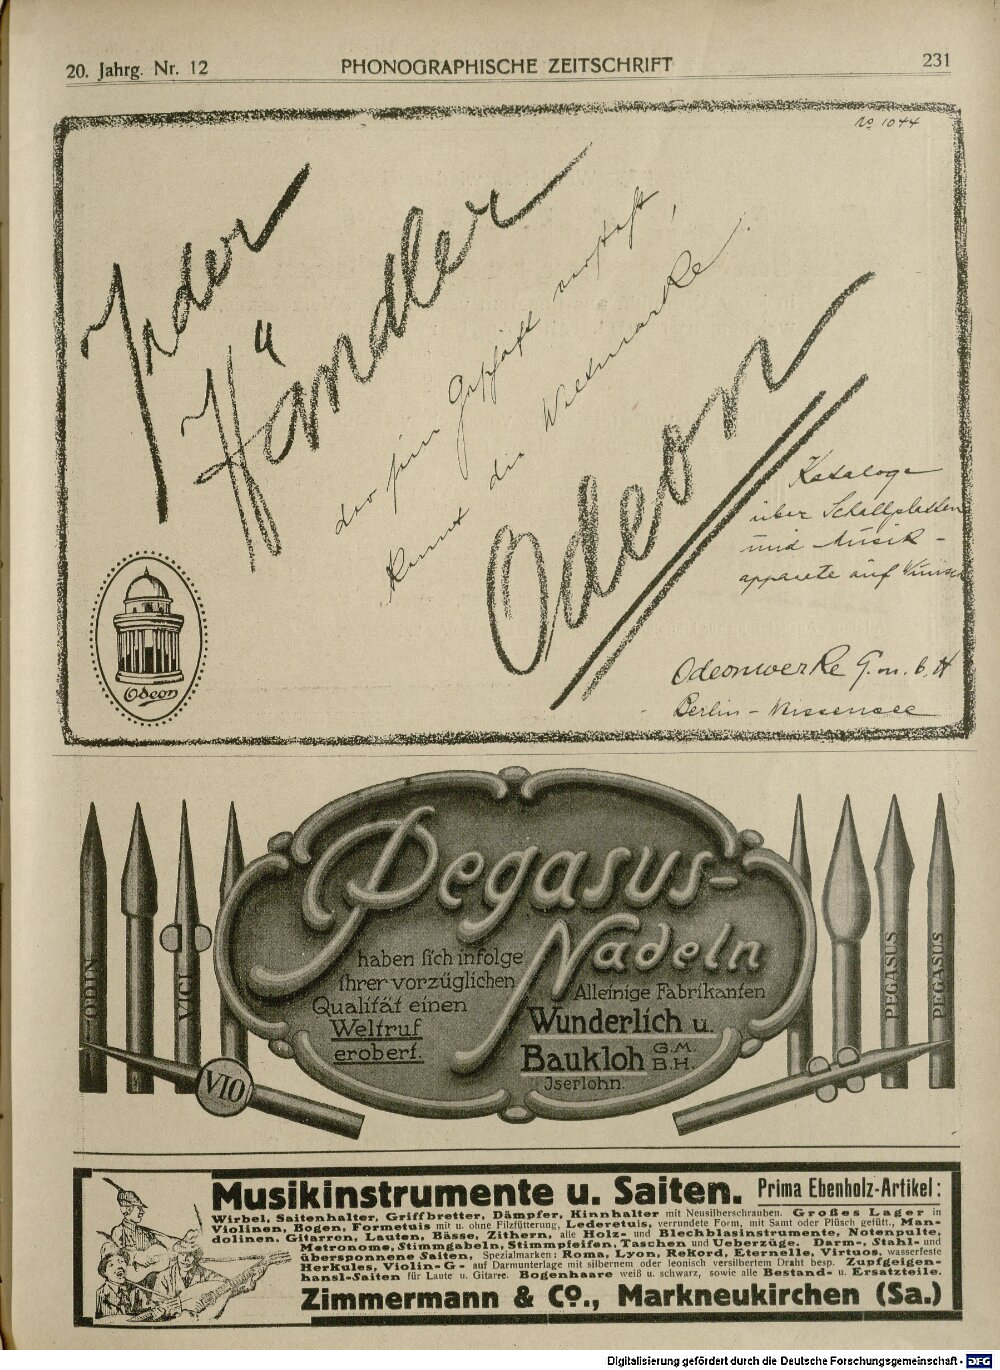 20. Jahrg. Nr. 12 PHONOGRAPHISCHE ZEITSCHRIFT 231
No 1044
Jeder
Händler
der sein Geschäft versteht,
kennt die Weltmarke
Odeon
Kataloge
über Schallplatten
und Musik-
apparate auf Wunsch
Odeon
Odeonwerke G.m.b.H
Berlin-Weissensee
Pegasus-
Nadeln
haben sich infolge
ihrer vorzüglichen
Qualität einen
Weltruf
erobert.
Alleinige Fabrikanten
Wunderlich u.
Baukloh G.M.B.H.
Iserlohn.
ODIN
VICI
VIO
PEGASUS
PEGASUS
Musikinstrumente u. Saiten. Prima Ebenholz-Artikel:
Wirbel, Saitenhalter, Griffbretter, Dämpfer, Kinnhalter mit Neusilberschrauben. Großes Lager in
Violinen, Bogen, Formetuis mit u. ohne Filzfütterung, Lederetuis, verrundete Form, mit Samt oder Plüsch gefütt., Man-
dolinen. Gitarren, Lauten, Bässe, Zithern, alle Holz- und Blechblasinstrumente, Notenpulte,
Metronome, Stimmgabeln, Stimmpfeifen, Taschen und Ueberzüge. Darm-, Stahl- und
übersponnene Saiten, Spezialmarken: Roma, Lyon, Rekord, Eternelle, Virtuos, wasserfeste
Herkules, Violin-G- auf Darmunterlage mit silbernem oder leonisch versilbertem Draht besp. Zupfgeigen-
hansl-Saiten für Laute u. Gitarre. Bogenhaare weiß u. schwarz, sowie alle Bestand- u. Ersatzteile.
Zimmermann & Co., Markneukirchen (Sa.)
Digitalisierung gefördert durch die Deutsche Forschungsgemeinschaft - DFG